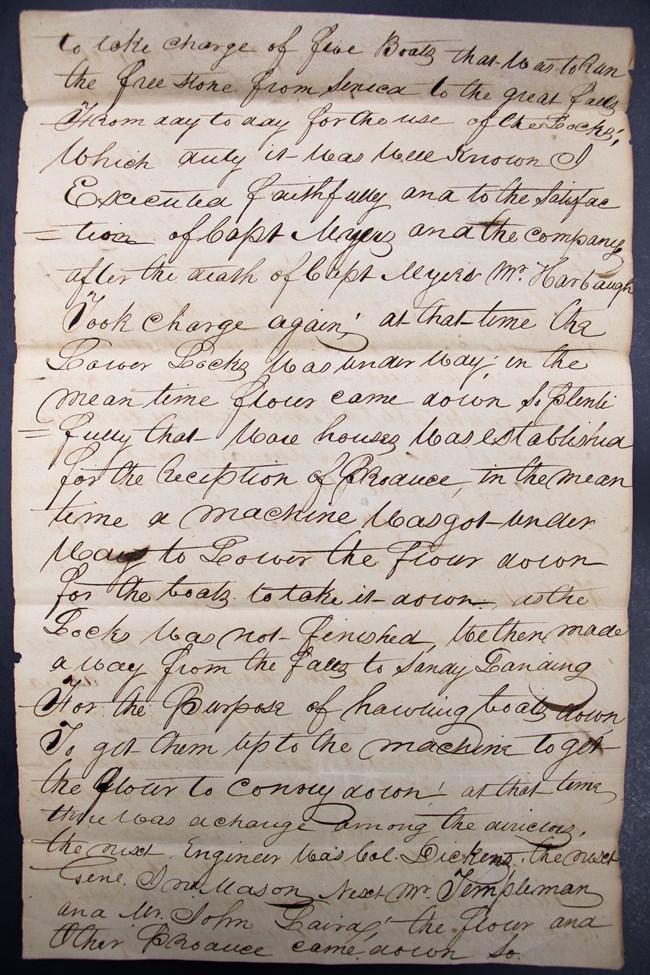 to take charge of five Boats that was to Run
the free stone from Seneca to the great falls
From day to day for the use of the Locks,
Which duty it was well Known I
Executed faithfully and to the Satisfac
= tion of Capt Myers and the company
after the death of Capt Myers Mr. Harbaugh
Took charge again, at that time the
Lower Locks was under way; in the
mean time flour came down So Plenti
= fully that ware houses was established
for the Reception of Produce, in the mean
time a machine was got under
way to Lower the flour down
for the boats to take it down, as the
Locks was not finished, We then made
a way from the falls to Sandy Landing
For the Purpose of hawling boats down
To get them up to the machine to get
the flour to convey down, at that time
there was a change among the directors,
the next Engineer was Col. Dickens, the next
Gene. Mason Next Mr. Templeman
and Mr. John Laird, the flour and
Other Produce came down So